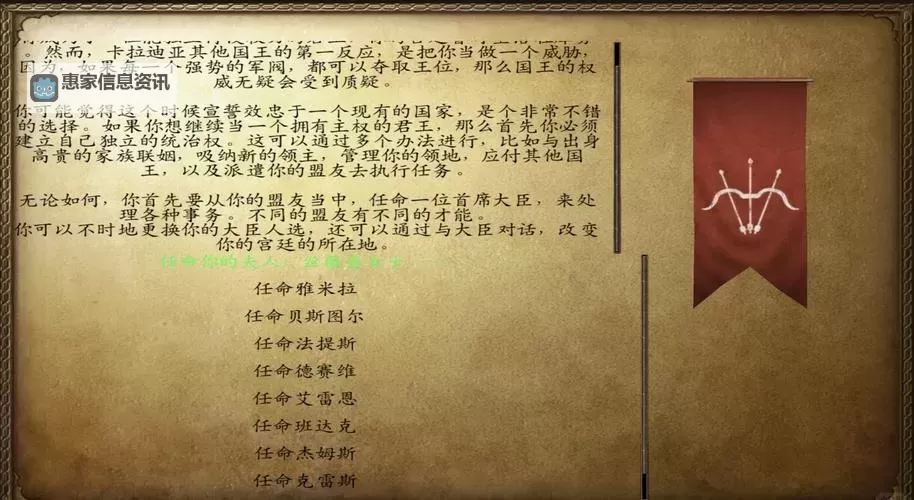 。然而，卡拉迪亚其他国王的第一反应，是把你当做一个威胁，
因为，如果每一个强势的军阀，都可以夺取王位，那么国王的权
威无疑会受到质疑。
惠家信息资讯
你可能觉得这个时候宣誓效忠于一个现有的国家，是个非常不错
的选择。如果你想继续当一个拥有主权的君王，那么首先你必须
建立自己独立的统治权。这可以通过多个办法进行，比如与出身
高贵的家族联姻，吸纳新的领主，管理你的领地，应付其他国
王，以及派遣你的盟友去执行任务。
无论如何，你首先要从你的盟友当中，任命一位首席大臣，来处
理各种事务。不同的盟友有不同的才能。
你可以不时地更换你的大臣人选，还可以通过与大臣对话，改变
你的宫廷的所在地。
任命你的夫人，
任命雅米拉
任命贝斯图尔
任命法提斯
任命德赛维
任命艾雷恩
任命班达克
任命杰姆斯
任命克雷斯